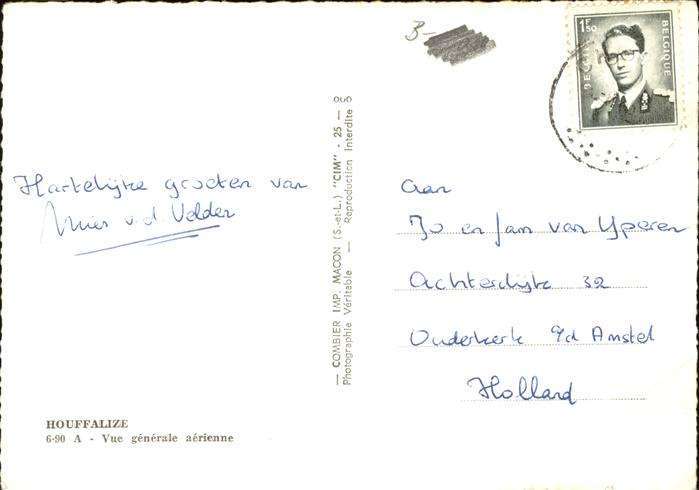 B-
1F50
BELGIE
BELGIQUE
Hartelijke groeten van
Mies v.d Velden
Aan
Jo en Jan van Yperen
Achterdijk 32
Ouderkerk a/d Amstel
Holland
— COMBIER IMP. MACON (S.-et-L.) "CIM" - 25 —
Photographie Véritable — Reproduction Interdite
HOUFFALIZE
6-90 A - Vue générale aérienne